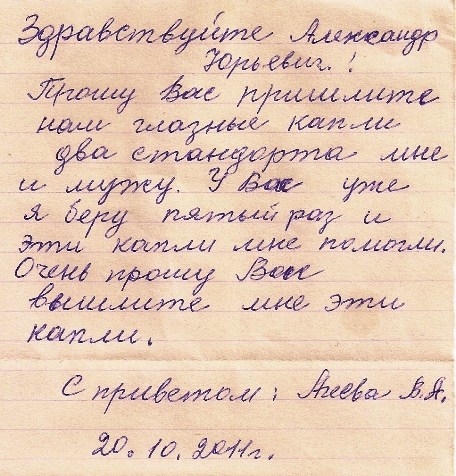 Здравствуйте Александр
Юрьевич.!
Прошу Вас пришлите
нам глазные капли
два стандорта мне
и мужу. У Вас уже
я беру пятый раз и
эти капли мне помогли.
Очень прошу Вас
вышлите мне эти
капли.
С приветом: Агеева В.А.
20.10.2011г.